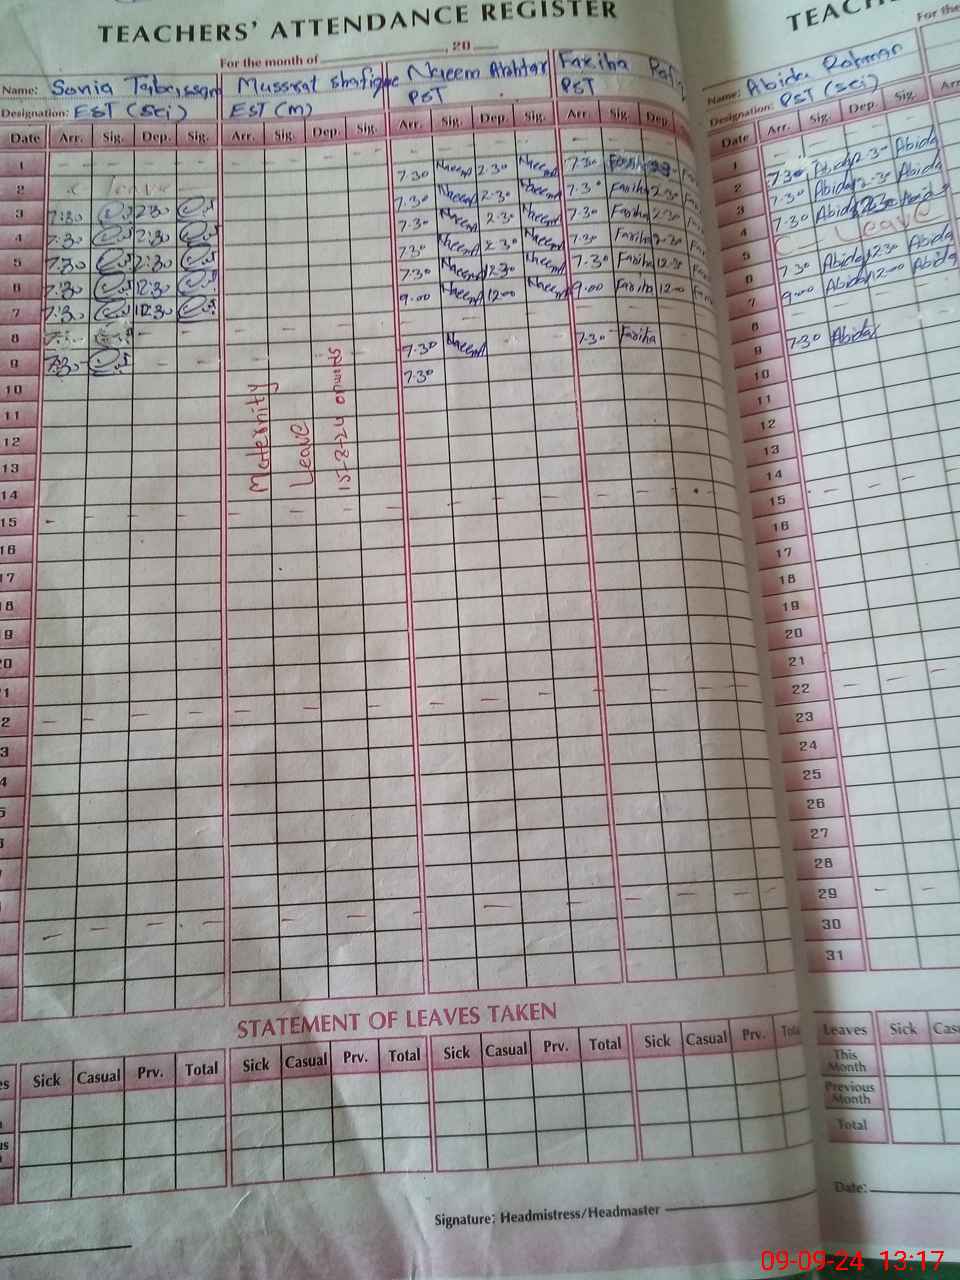 TEACHERS' ATTENDANCE REGISTER
For the month of , 20
Name: Sonia Mussrat shafique Naeem Akhtar Fariha
Designation: EST (Sci) EST (m) PST PST
Date Arr. Sig. Dep. Sig. Arr. Sig. Dep. Sig. Arr. Sig. Dep. Sig. Arr. Sig. Dep.
1 7.30 Naeem 2.30 Naeem 7.30 Fariha
2 Leave 7.30 Naeem 2.30 Naeem 7.30 Fariha 2.30
3 7:30 2:30 7.30 Naeem 2.30 Naeem 7.30 Fariha 2.30
4 7.30 2:30 7.30 Naeem 2.30 Naeem 7.30 Fariha 2.30
5 7.30 2:30 7.30 Naeem Naeem 7.30 Fariha 12.30
6 7:30 12:30 9.00 Naeem 12.00 Naeem 9.00 Fariha 12.00
7 7:30 12:30
8 7.30 Naeem 7.30 Fariha
9 7:30 7.30
10
11
12
13
14
15
16
17
18
19
20
21
22
Maternity
Leave
15-8-24 onwards
STATEMENT OF LEAVES TAKEN
Sick Casual Prv. Total Sick Casual Prv. Total Sick Casual Prv. Total Sick Casual Prv.
Signature: Headmistress/Headmaster
For the
Name: Abida Rahman
Designation: PST (sci)
Date Arr. Sig. Dep. Sig.
1 7.30 Abida 2.30 Abida
2 7.30 Abida 2.30 Abida
3 7.30 Abida 2.30
4 Leave
5 7.30 Abida 12.30 Abida
6 9.00 Abida 12.00 Abida
7
8 7.30 Abida
9
10
11
12
13
14
15
16
17
18
19
20
21
22
23
24
25
26
27
28
29
30
31
Leaves Sick
This
Month
Previous
Month
Total
Date:
09-09-24 13:17